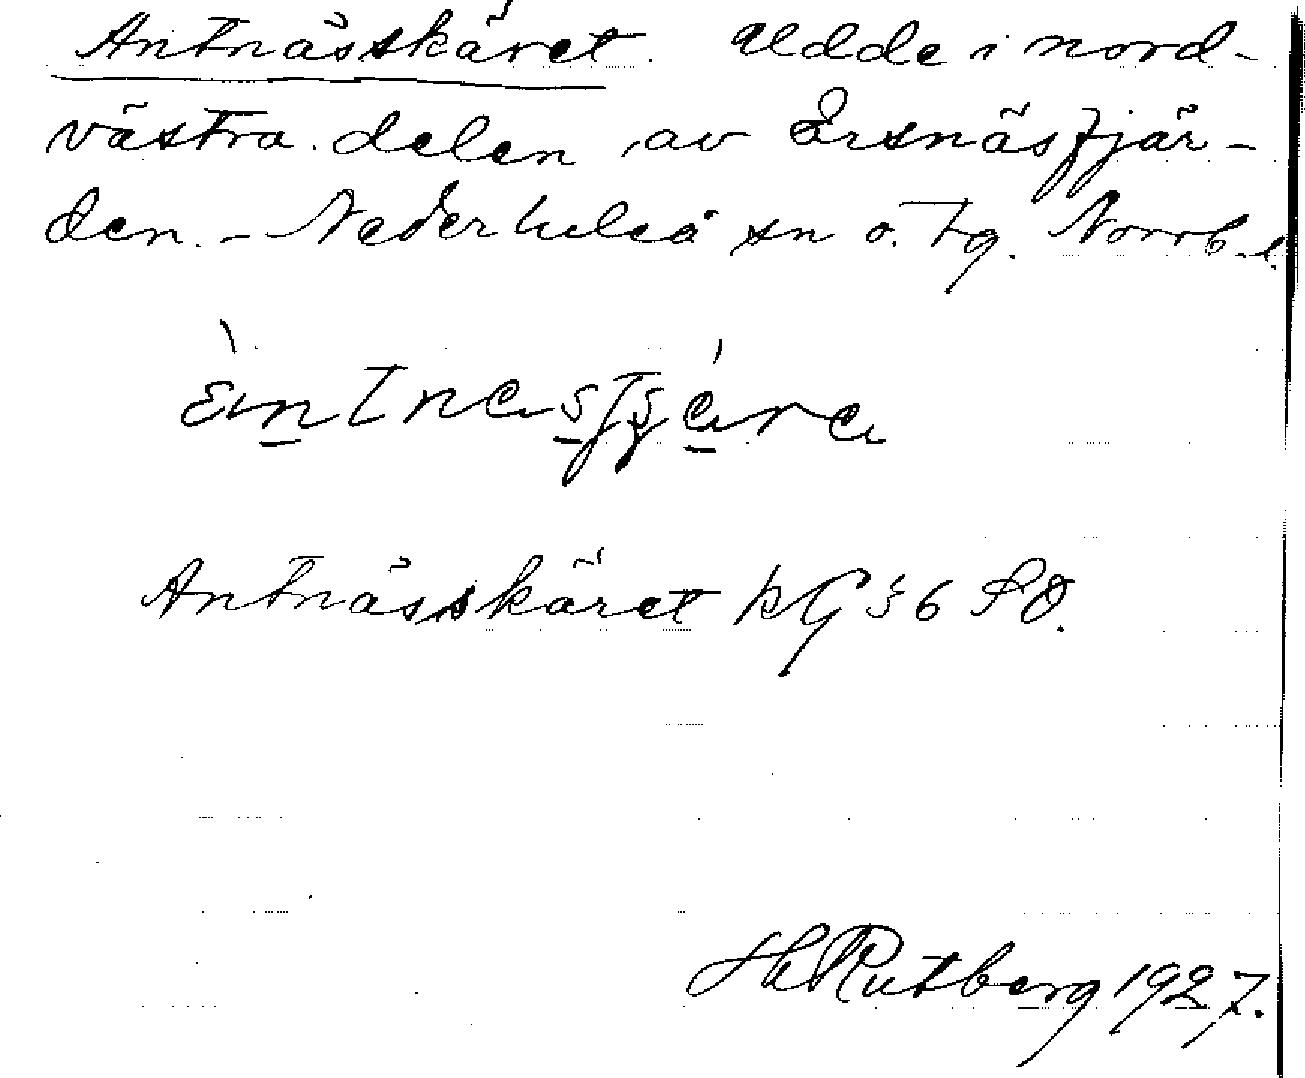 Antnässkäret. Udde i nord-
västra delen av Ersnäsfjär-
den. - Nederluleå sn o. tg. Norrb. l.
Antnässkäret kG 36 SO.
H Rutberg 1927.